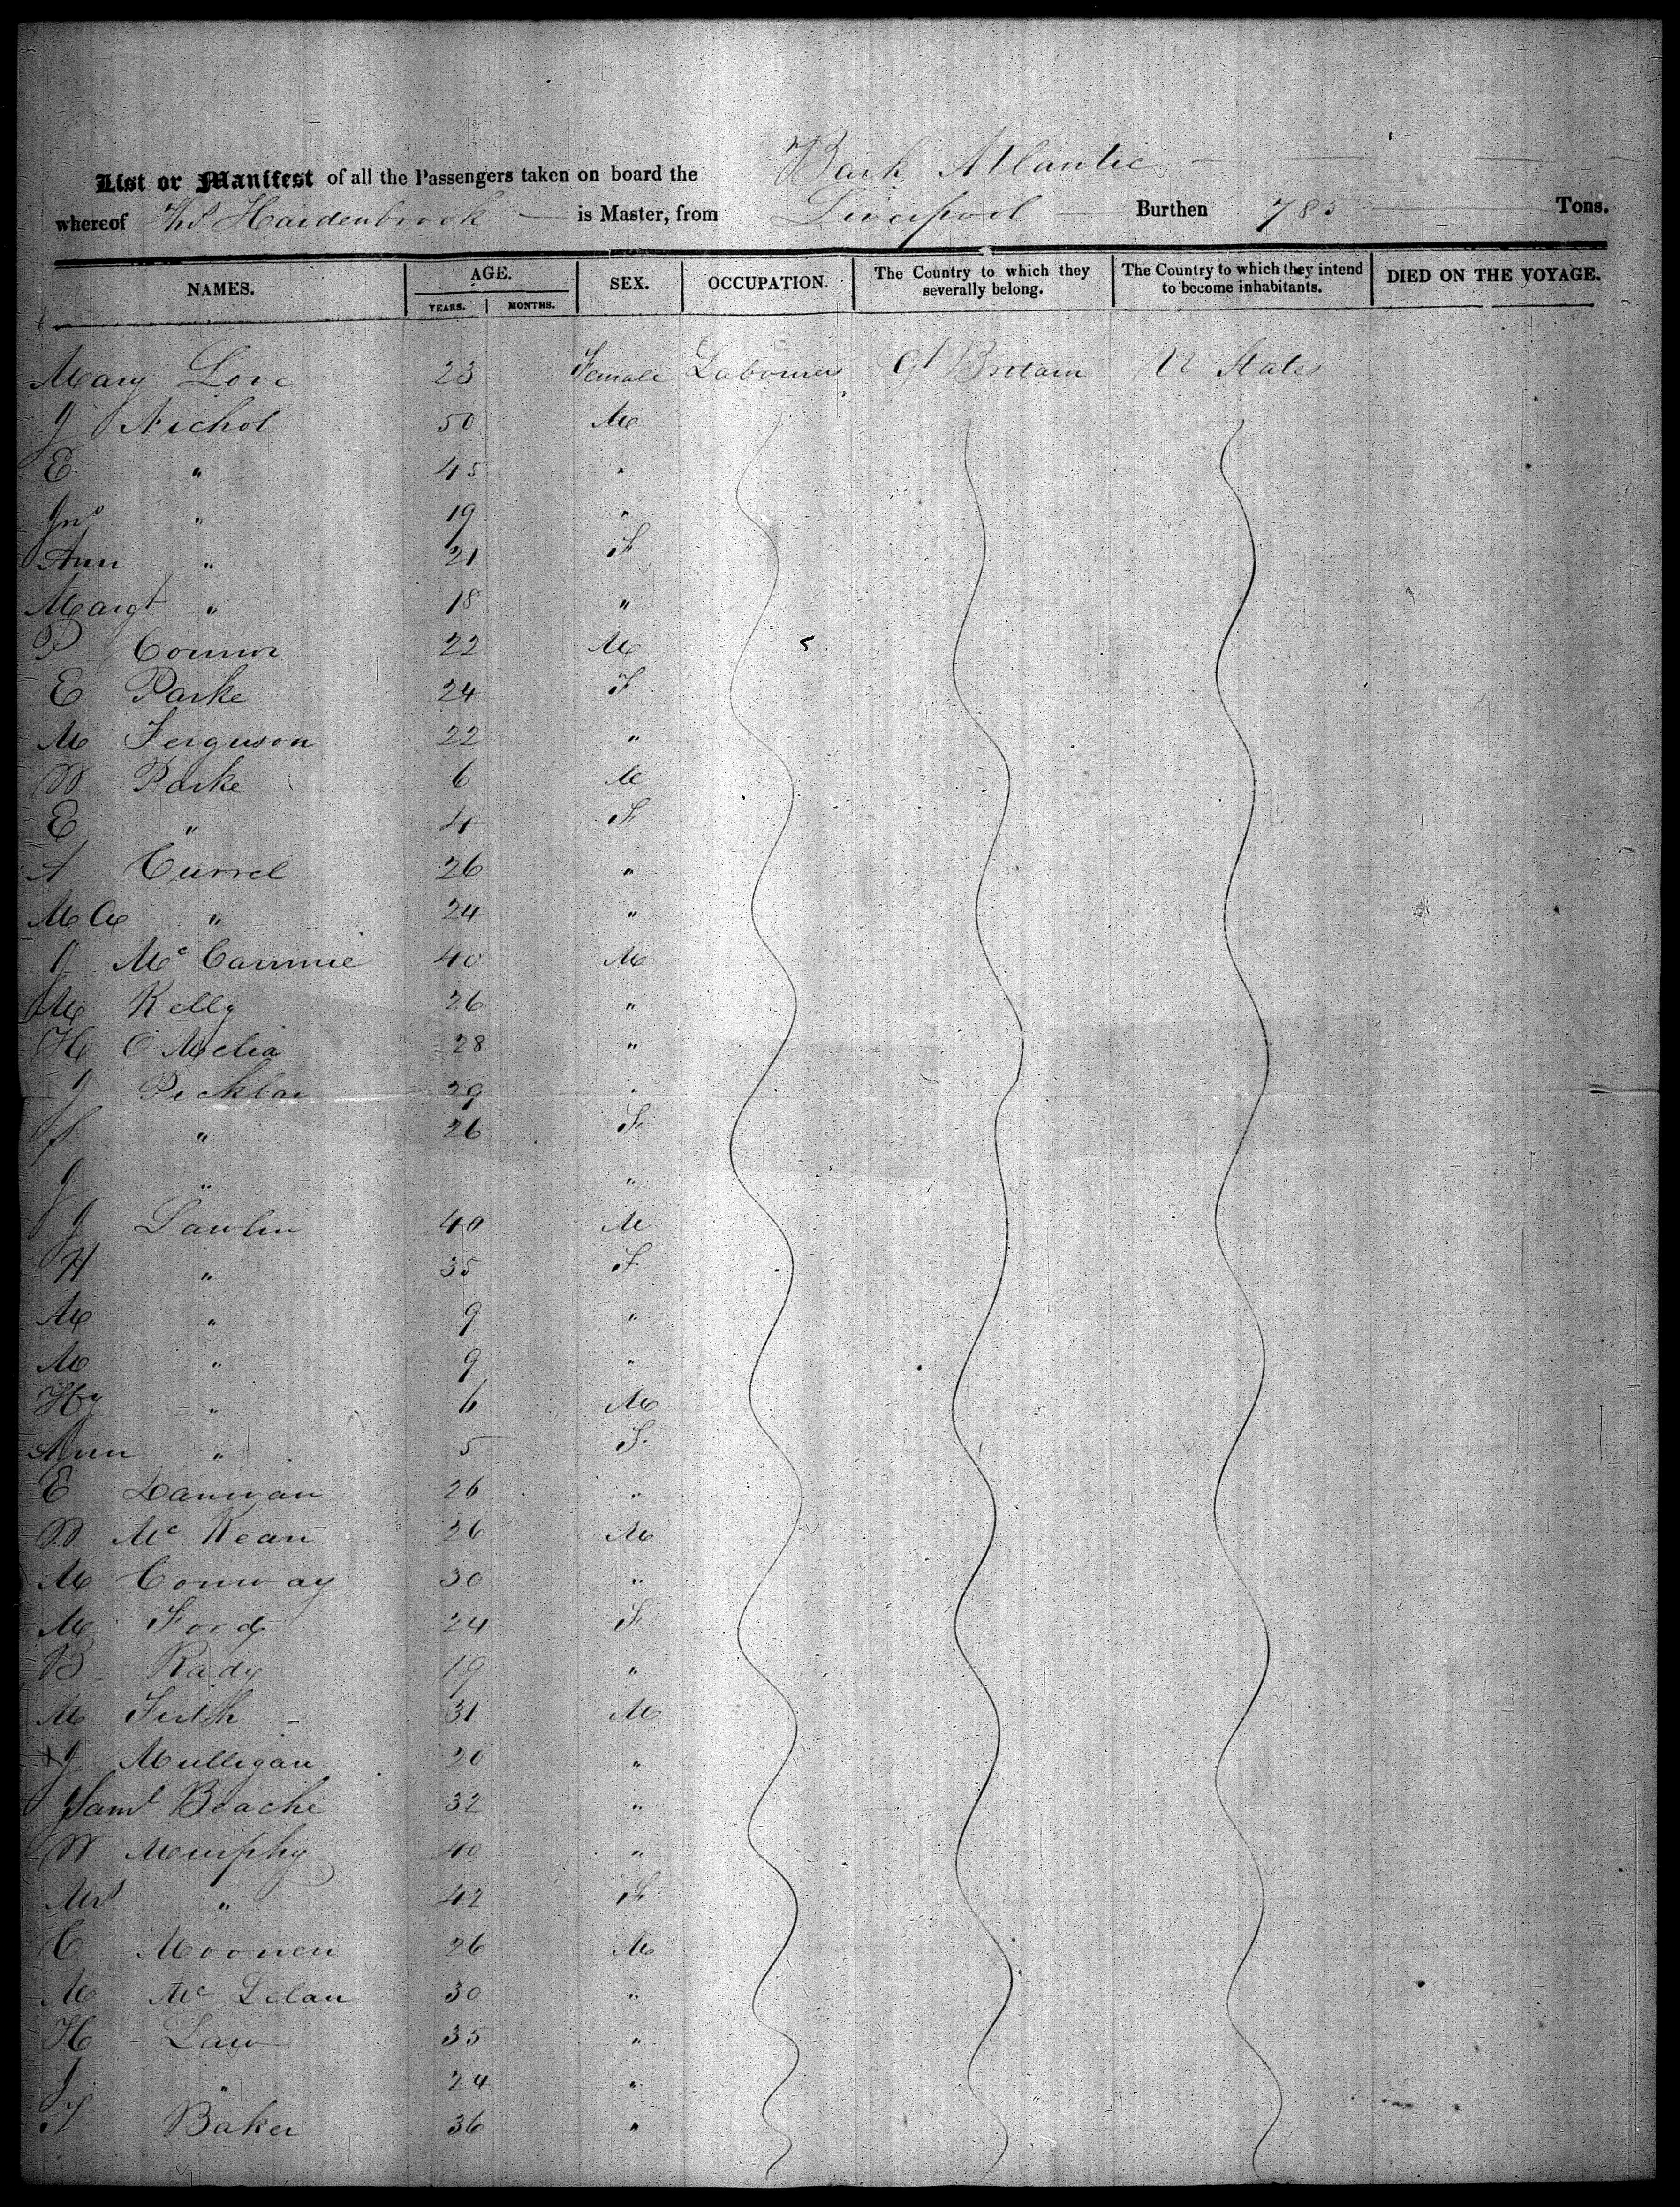 List or Manifest of all the Passengers taken on board the Bark Atlantic
whereof Thos Hardenbrook is Master, from Liverpool Burthen 785 Tons.
NAMES. AGE. SEX. OCCUPATION. The Country to which they severally belong. The Country to which they intend to become inhabitants. DIED ON THE VOYAGE.
YEARS. MONTHS.
Mary Love 23 Female Labourers Gt Britain U States
J Nichol 50 M
E " 45 "
Jno " 19 "
Ann " 21 F
Margt " 18 "
P Connor 22 M
E Parke 24 F
M Ferguson 22 "
W Parke 6 M
E " 4 F
A Currel 26 "
M A " 24 "
J Mc Cammie 40 M
M Kelly 26 "
H O Melia 28 "
J 29 "
S " 26 F
J " "
J Lawlin 40 M
H " 35 F
M " 9 "
M " 9 "
Hy " 6 M
Ann " 5 F
E Lannan 26 "
W Mc Kean 26 M
M Conway 30 "
M Ford 24 F
B Rady 19 "
M Firth 31 M
J Mulligan 20 "
Saml Beache 32 "
W Murphy 40 "
Mrs " 42 F
C Moonen 26 M
M Mc Lelan 30 "
H Law 35 "
J " 24 "
S Baker 36 "